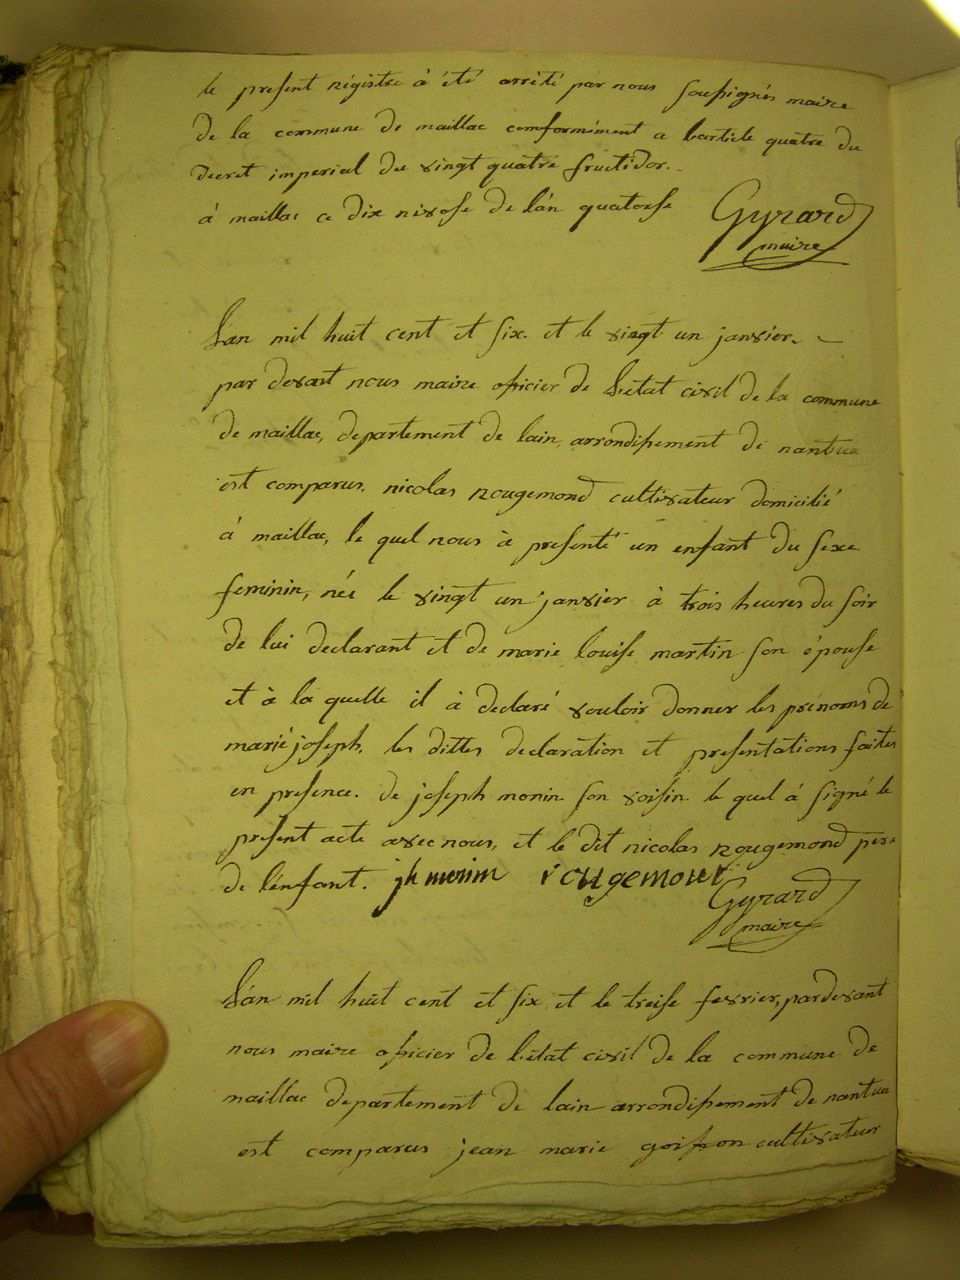 le present régistre à été arrêté par nous soussignés maire
De la commune De maillac comformément a l'article quatre du
Decret imperial du vingt quatre fructidor.
á maillac ce Dix nivose De l'án quatorse
Gyrard
maire
L'an mil huit cent et six. et le vingt un janvier.
par devant nous maire oficier De L'état civil De la commune
De maillac, Departement De lain, arrondissement De nantua
est comparus. nicolas Rougemond cultivateur Domicilié
á maillac, le quel nous à presenté un enfant Du sexe
feminin, née le vingt un janvier à trois heures Du soir
De lui declarant et De marie louise martin son épouse
et à la quelle il à Declaré vouloir Donner les prénoms De
marie joseph. les dittes Declaration et presentations faites
en presence. De joseph monin son voisin le quel á signé le
present acte avec nous, et le Dit nicolas Rougemond pere
De l'enfant. jh monin rougemont
Gyrard
maire
L'an mil huit cent et six et le treise fevrier, pardevant
nous maire oficier De l'état civil De la commune De
maillac Departement De lain arrondissement De nantua
est comparus jean marie goiffon cultivateur